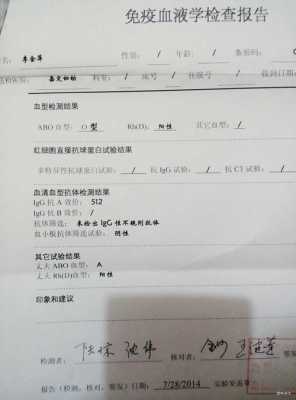 免疫血液学检查报告
名: 李金萍 性别: / 年龄: / 条码码:
科室: / 床号 / 住院号 / 收到日期:
血型检测结果
ABO血型: O型 Rh(D): 阳性 其它血型: /
红细胞直接抗球蛋白试验结果
多特异性抗球蛋白试验: / 抗IgG试验: / 抗C3试验: /
血清血型抗体检测结果
IgG抗A效价: 512
IgG抗B效价: /
抗体筛选: 未检出IgG性不规则抗体
血小板抗体筛选试验: 阴性
其它试验结果
丈夫ABO血型: A
丈夫Rh(D)血型: 阳性
印象和建议
检测者: 核对者:
报告(检测、核对、签发)日期: 7/28/2014 实验发基章